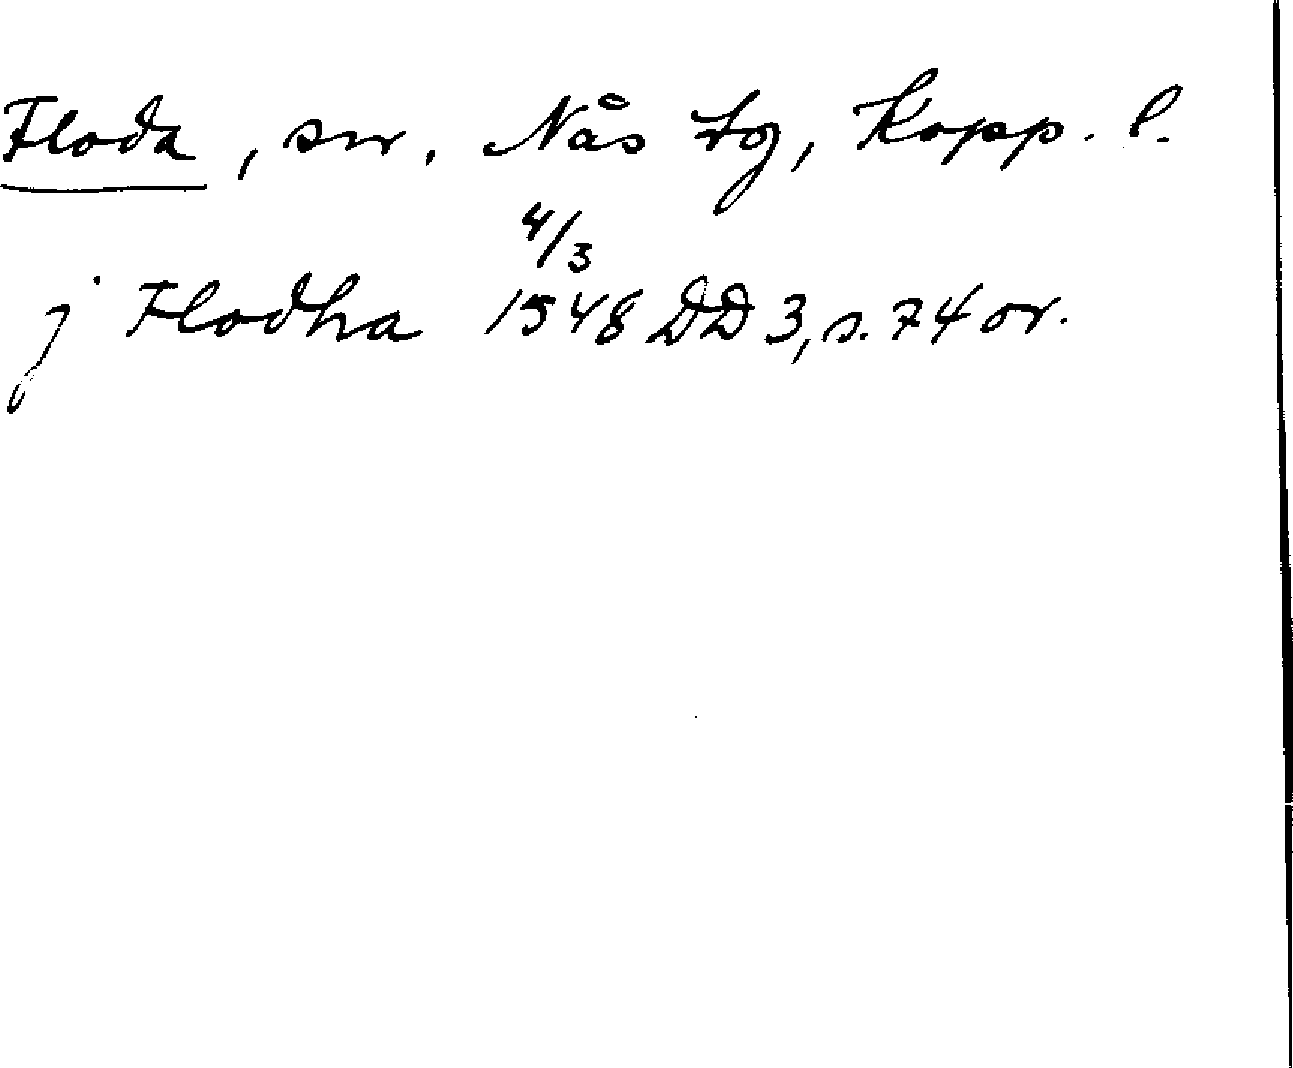 Floda, sn. Nås tg, Kopp. l.
4/3
j Flodha 1548 DD 3, s. 74 or.